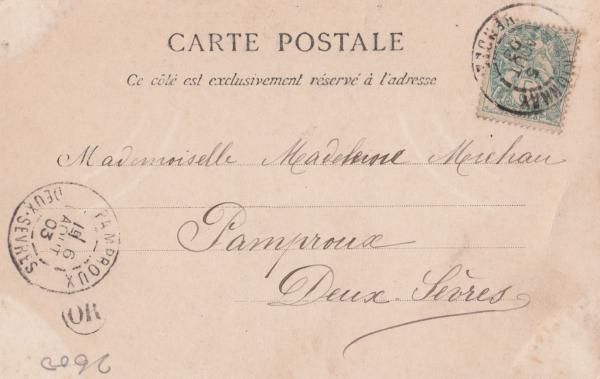 CARTE POSTALE
Ce côté est exclusivement réservé à l'adresse
VENDÉE
Mademoiselle Madeleine Michau
Pamproux
Deux-Sèvres
PAMPROUX
16
AOUT
03
DEUX-SÈVRES
OR
2600